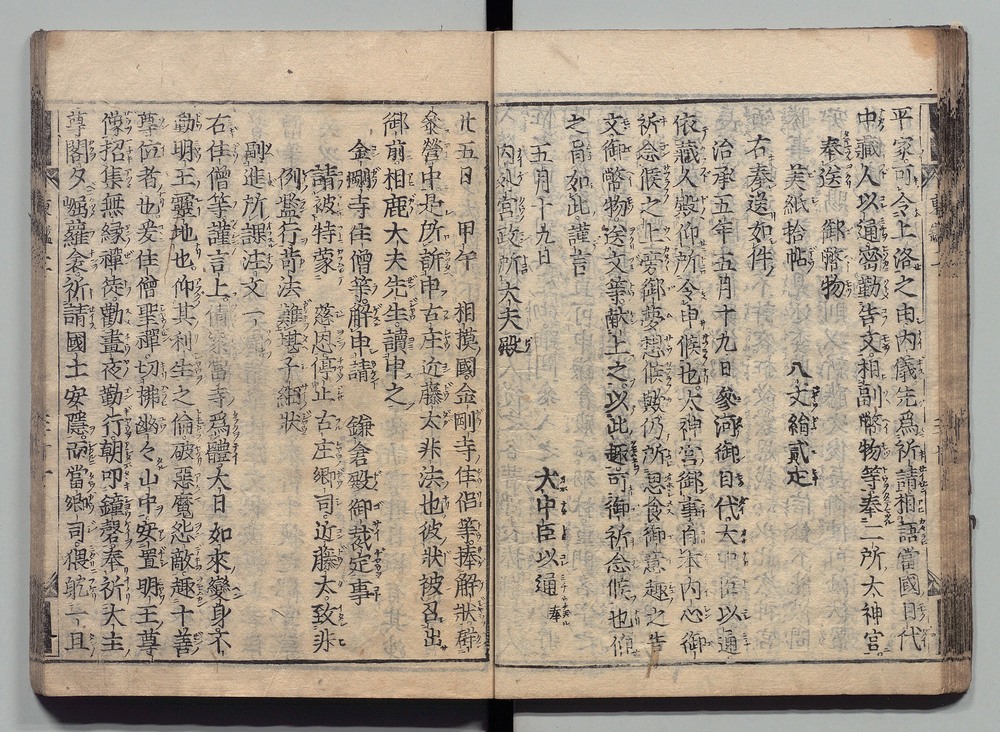 平家可令上洛之由内儀先爲祈請相語當國目代
中藏人以通密勤告文相副幣物等奉二所太神宮
奉送　御幣物
美紙拾帖　八丈絹貳疋
右奉送如件
治承五年五月十九日參河御目代大中臣以通
依藏人殿仰所令申候也太神宮御事自本内心御
祈念候之上旁御夢想候歟仍所思食御意趣之告
文御幣物送文等献上之以此趣可御祈念候也
之旨如此謹言
五月十九日　大中臣以通奉
内外宮政所大夫殿
廿五日　甲午　相摸國金剛寺住侶等捧解状群
參營中是所訴申古庄近藤太非法也彼状被召出
御前相鹿大夫先生讀申之
金剛寺住僧等解申請　鎌倉殿御裁定事
請被特蒙　恩停止古庄郷司近藤太致非
例濫行苛法難堪子細状
副進所課注文一
右住僧等謹言上當寺爲體大日如來變身不
動明王靈地也仰其利生之倫破惡魔怨敵趣十善
尊位者也爰住僧聖禪切拂幽々山中安置明王尊
像招集無縁禪徒勵晝夜勤行朝叩鐘磬奉祈大主
尊閤夕唱羅衾祈請國土安隱而當郷司猥乾一旦